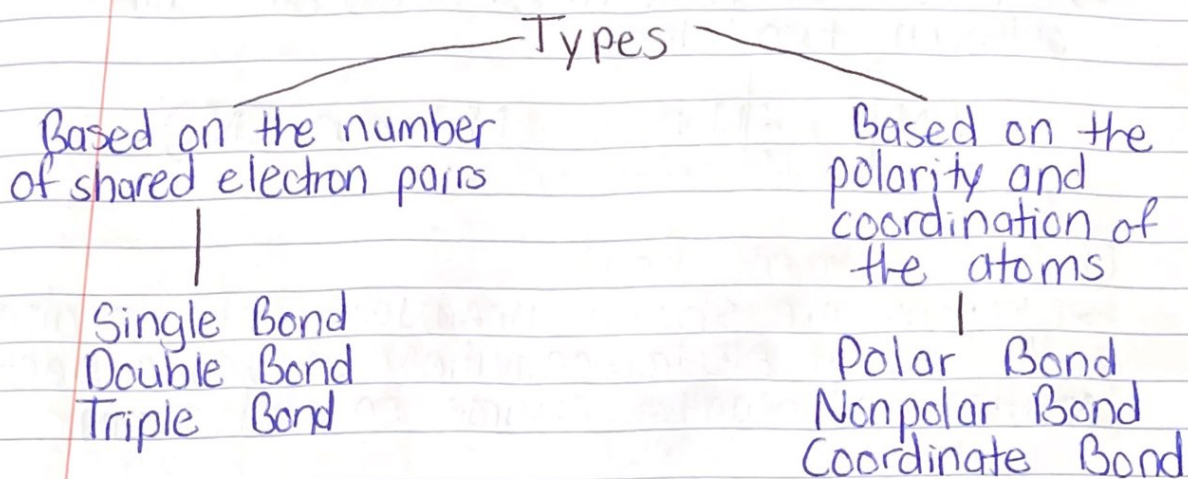 Types
Based on the number
of shared electron pairs
Single Bond
Double Bond
Triple Bond
Based on the
polarity and
coordination of
the atoms
Polar Bond
Nonpolar Bond
Coordinate Bond